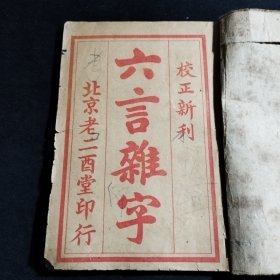 校正新利
六言雜字
北京老二酉堂印行